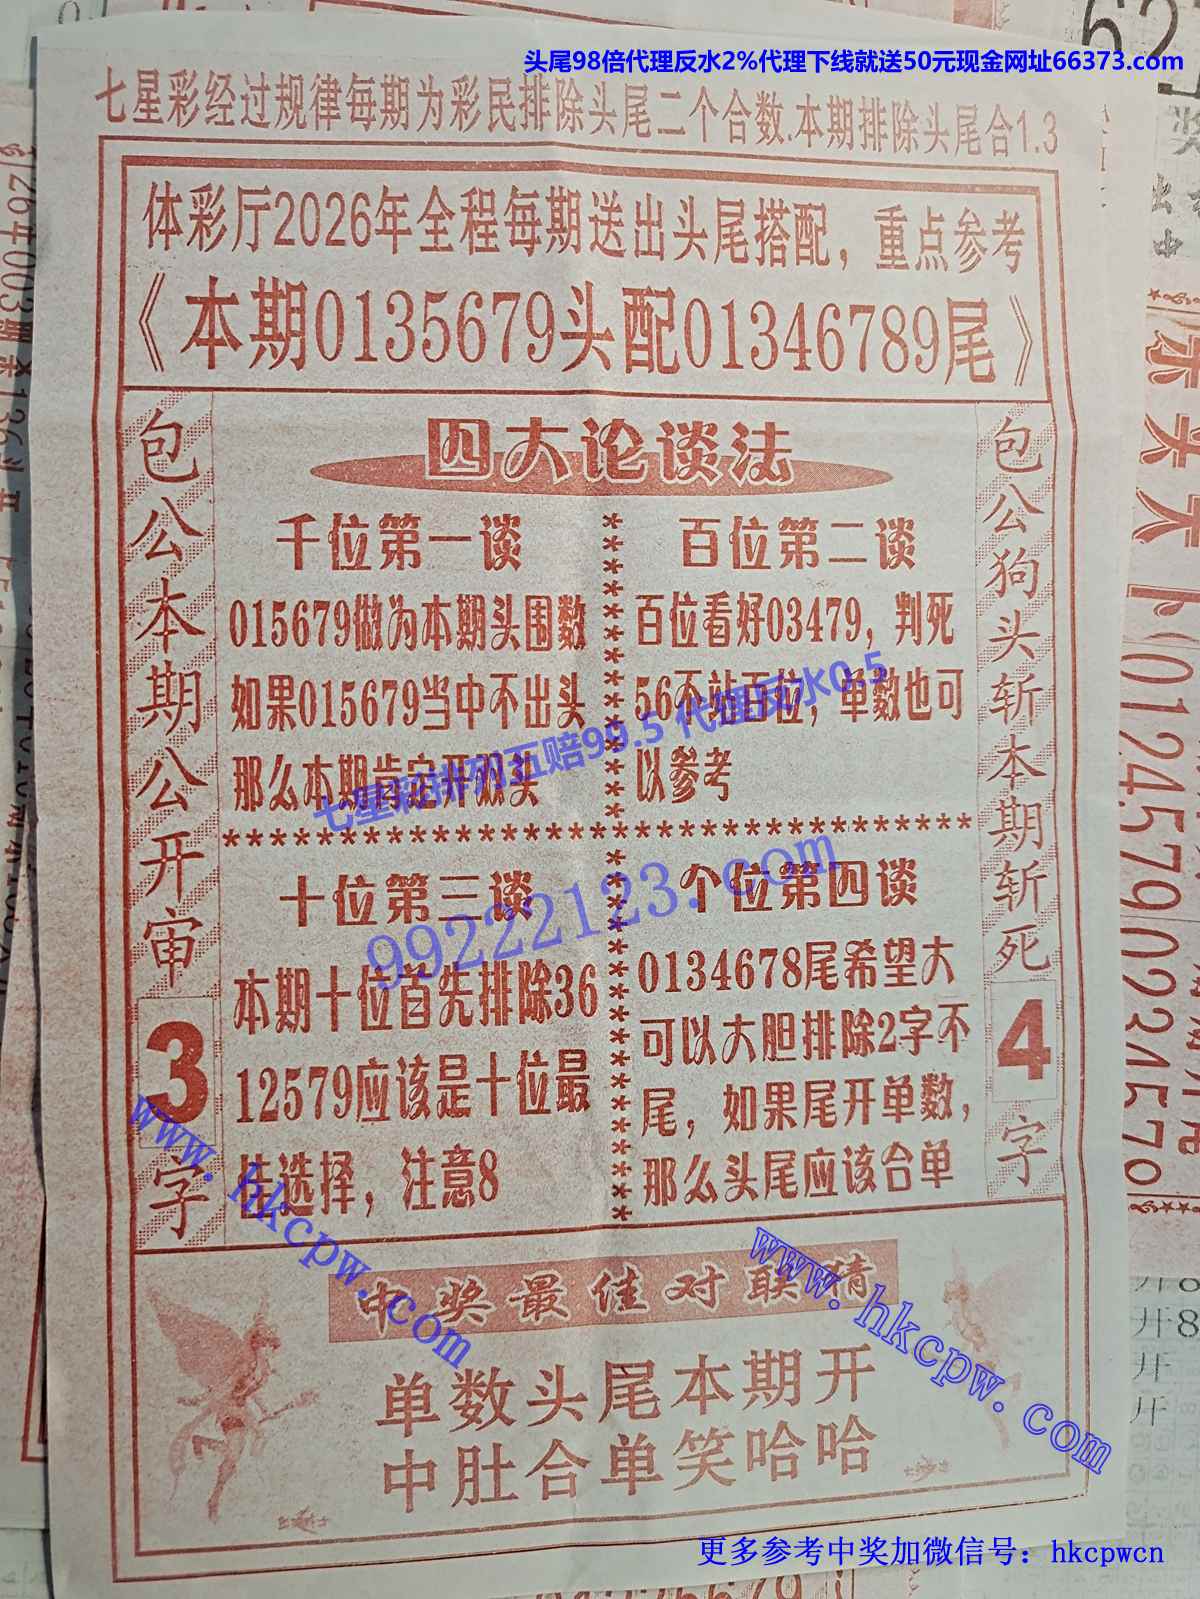 头尾98倍代理反水2%代理下线就送50元现金网址66373.com
七星彩经过规律每期为彩民排除头尾二个合数.本期排除头尾合1.3
体彩厅2026年全程每期送出头尾搭配，重点参考
《本期0135679头配01346789尾》
包公本期公开审3字
四大论谈法
千位第一谈
015679做为本期头围数
如果015679当中不出头
那么本期肯定开双头
百位第二谈
百位看好03479，判死
56不站百位，单数也可
以参考
十位第三谈
本期十位首先排除36
12579应该是十位最
佳选择，注意8
个位第四谈
0134678尾希望大
可以大胆排除2字不
尾，如果尾开单数，
那么头尾应该合单
包公狗头斩本期斩死4字
七星彩排列五赔99.5 代理反水0.5
99222123.com
www.hkcpw.com
www.hkcpw.com
中奖最佳对联猜
单数头尾本期开
中肚合单笑哈哈
更多参考中奖加微信号：hkcpwcn
01245790224570